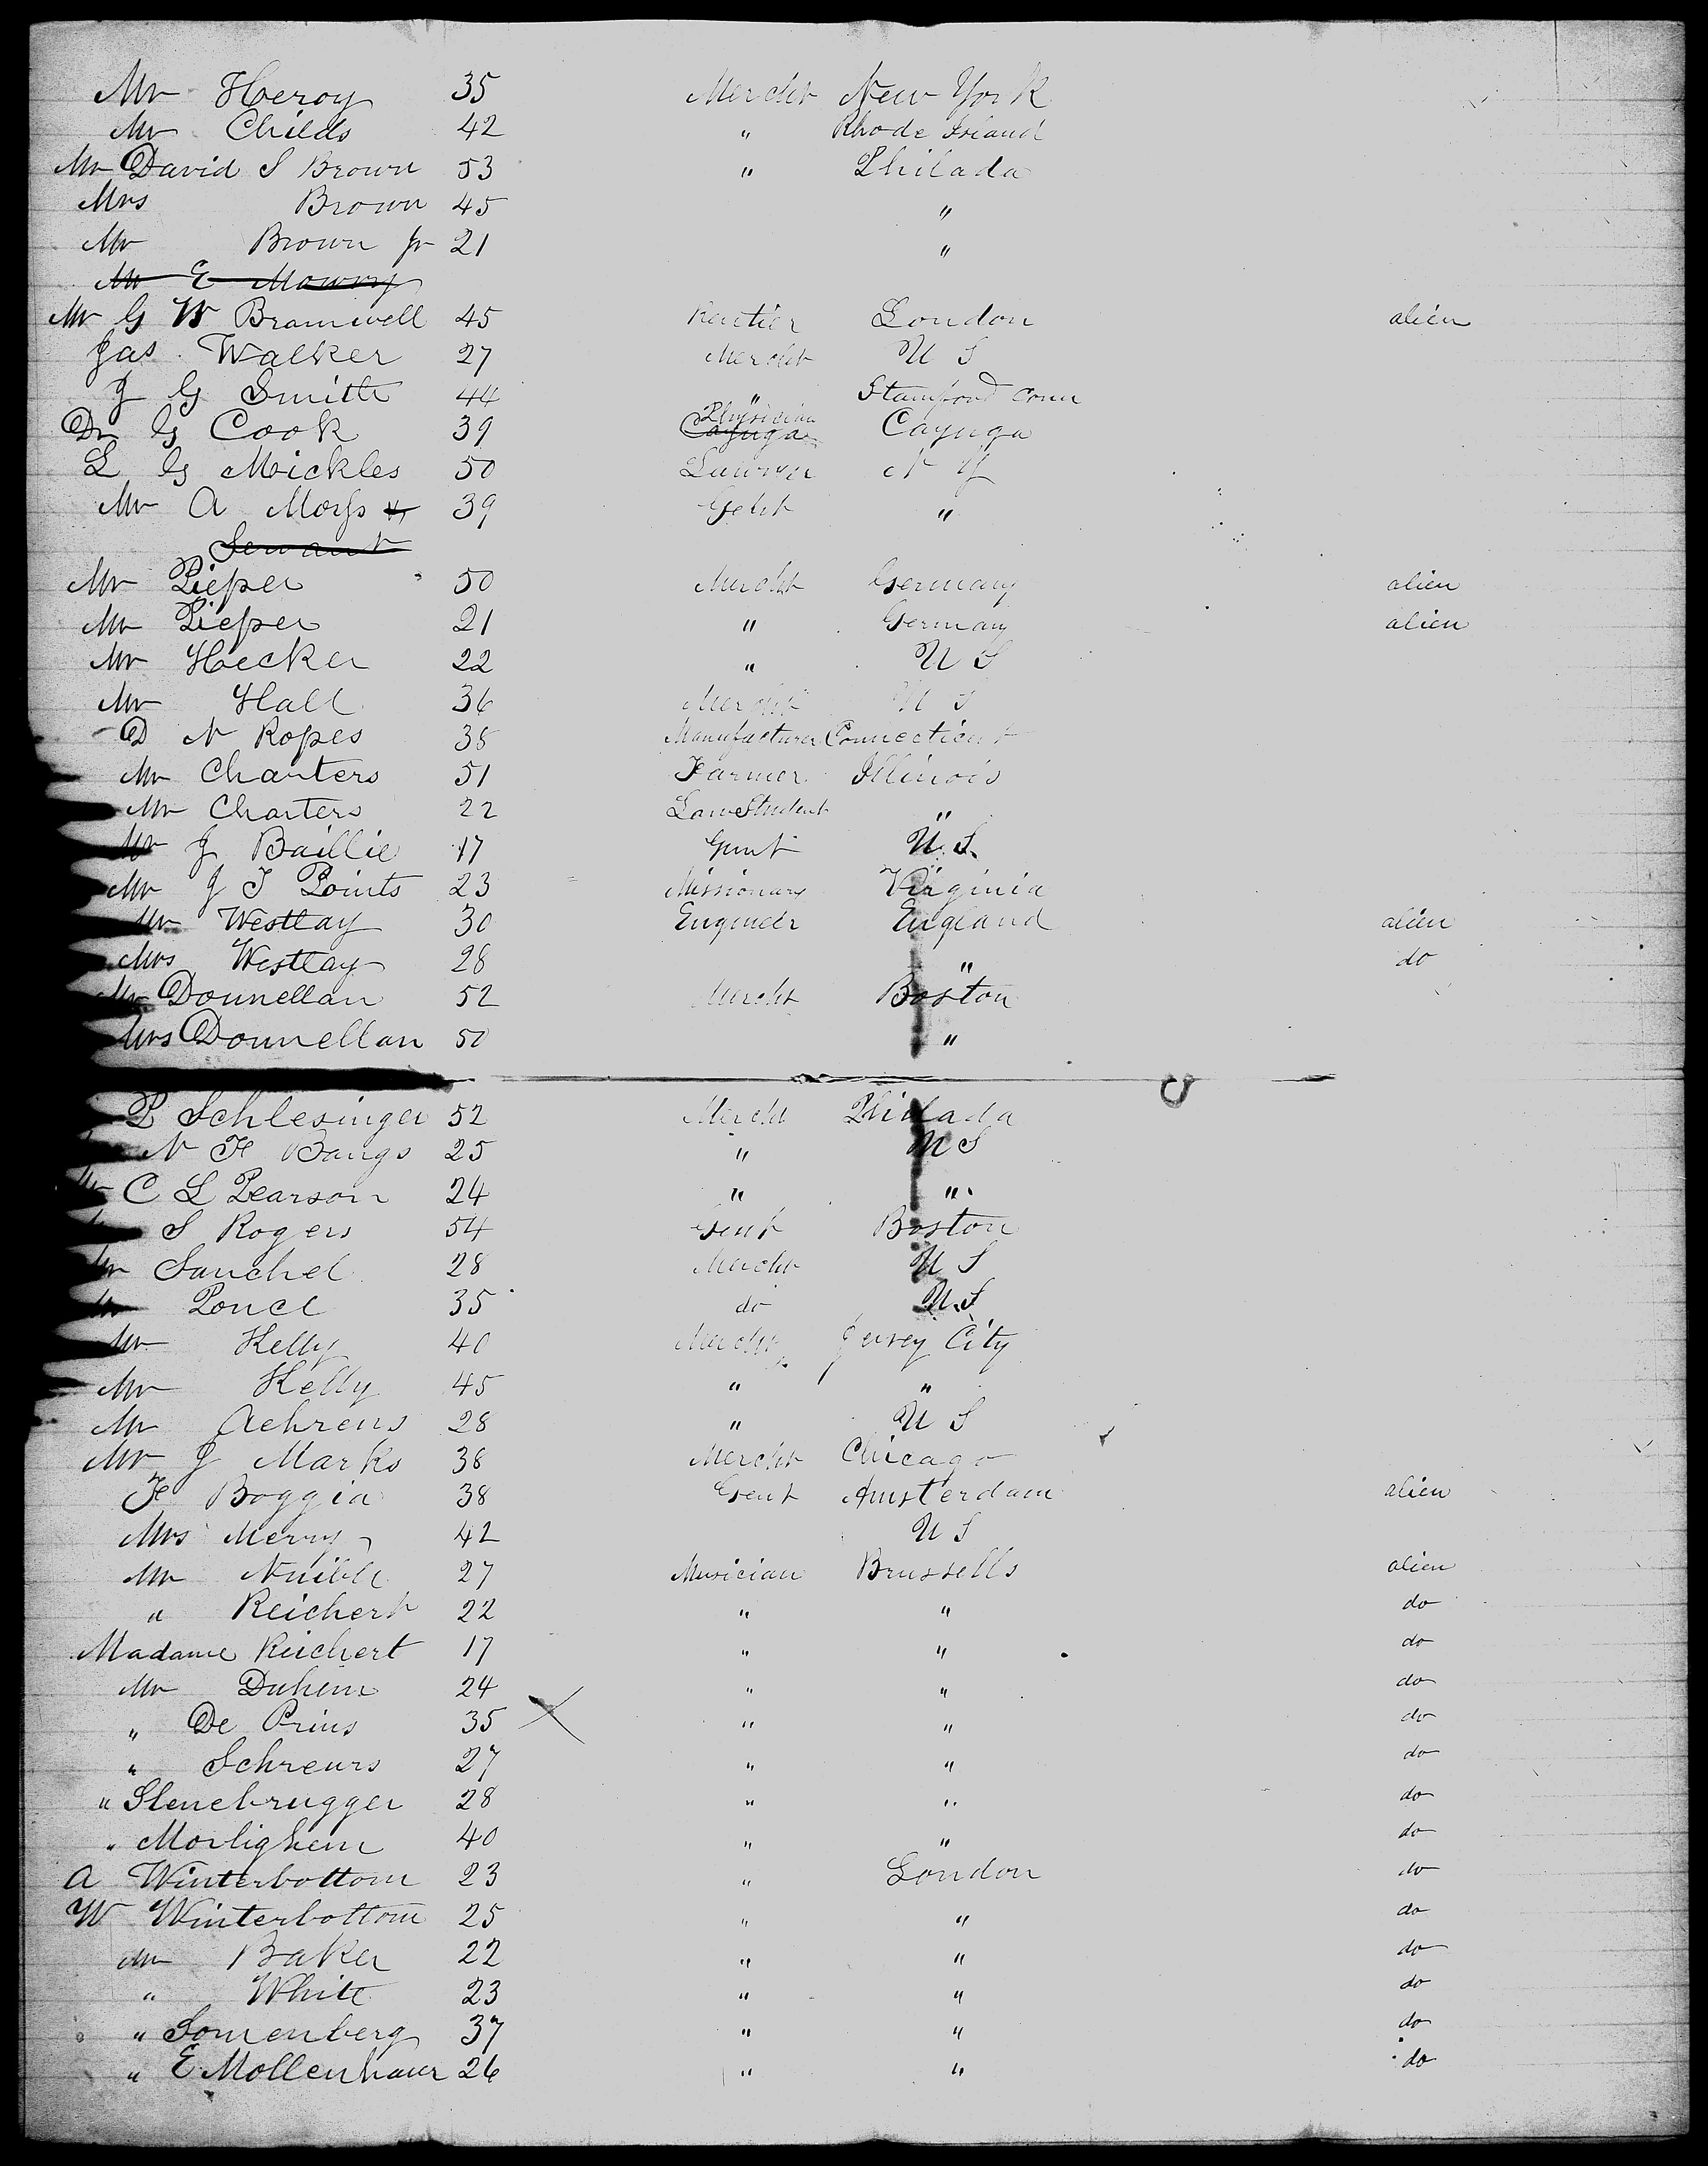 Mr Heroy 35 Mercht New York
Mr Childs 42 " Rhode Island
Mr David S Brown 53 " Philada
Mrs Brown 45 "
Mr Brown Jr 21 "
Mr E Mowry
Mr G W Bramwell 45 Rentier London alien
Jas. Walker 27 Mercht U S
J G Smith 44 " Stamford Conn
Dr G Cook 39 Cayuga Physician Cayuga
L G Mickles 50 N Y
Mr A 39 Gent "
Servant
Mr Pieper 50 Mercht Germany alien
Mr Pieper 21 " Germany alien
Mr Hecker 22 " U S
Mr Hall 36 Mercht U S
D N Ropes 38 Manufacturer Connecticut
Mr Charters 51 Farmer Illinois
Mr Charters 22 Law Student "
Mr J Baillie 17 Gent U.S.
Mr J T Points 23 Missionary Virginia
Mr Westlay 30 Engineer England alien
Mrs Westlay 28 " do
Mr Donnellan 52 Mercht Boston
Mrs Donnellan 50 "
P Schlesinger 52 Mercht Philada
N F Bangs 25 " U S
Mr C L Pearson 24 " "
S Rogers 54 Gent Boston
Mr Sanchel 28 Mercht U S
Mr Ponce 35 do U.S
Mr Kelly 40 Mercht Jersey City
Mr Kelly 45 " "
Mr Aehrens 28 " U S
Mr J Marks 38 Mercht Chicago
F Boggia 38 Gent Amsterdam alien
Mrs Merry 42 U S
Mr 27 Musician Brussells alien
" Reichert 22 " " do
Madame Reichert 17 " " do
Mr Duhem 24 " " do
" De Prins 35 " " do
" Schreurs 27 " " do
" Slenebrugger 28 " " do
" Morlighem 40 " " do
A Winterbottom 23 " London do
W Winterbottom 25 " " do
Mr Baker 22 " " do
" White 23 " " do
" Sonnenberg 37 " " do
" E Mollenhaur 26 " " do